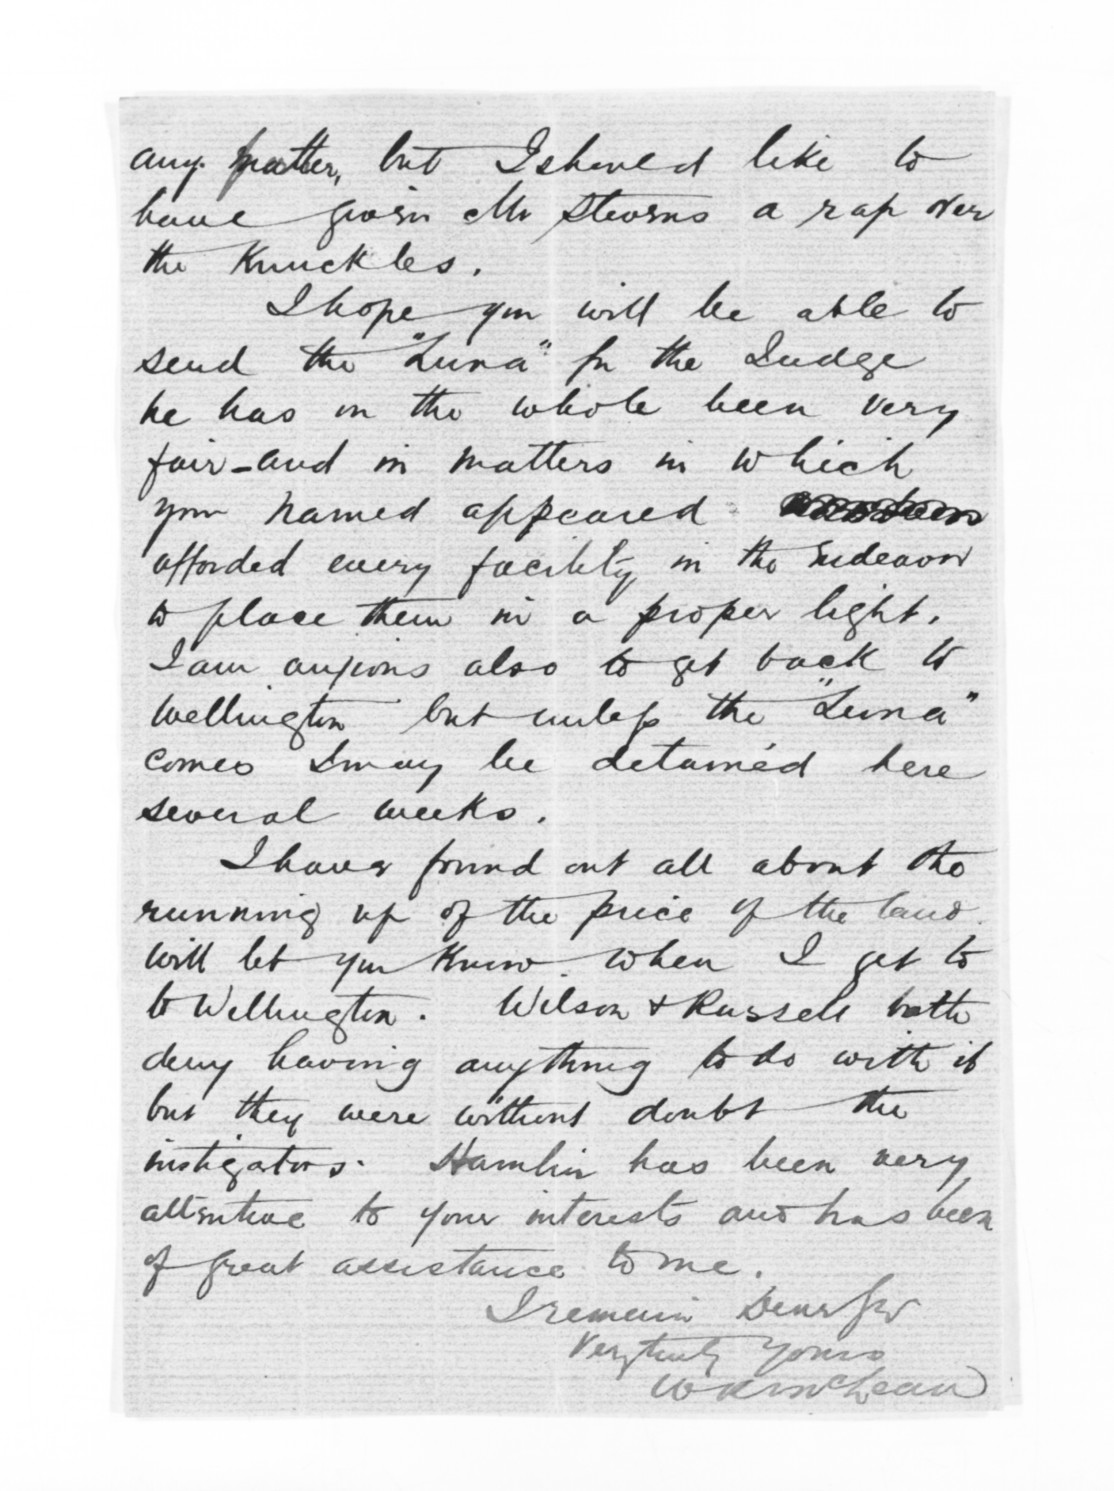 any matter, but I should like to
have given Mr Stevens a rap over
the Knuckles.
I hope you will be able to
send the "Luna" for the Judge
he has on the whole been very
fair - and in matters in which
your named appeared
afforded every facility in the endeavour
to place them in a proper light.
I am anxious also to get back to
Wellington but unless the "Luna"
comes I may be detained here
several weeks.
I have found out all about the
running up of the price of the land
will let you know when I get to
to Wellington. Wilson & Russell both
deny having anything to do with it
but they were without doubt the
instigators. Hamlin has been very
attentive to your interests and has been
of great assistance to me.
I remain Dear Sir
Very truly Yours